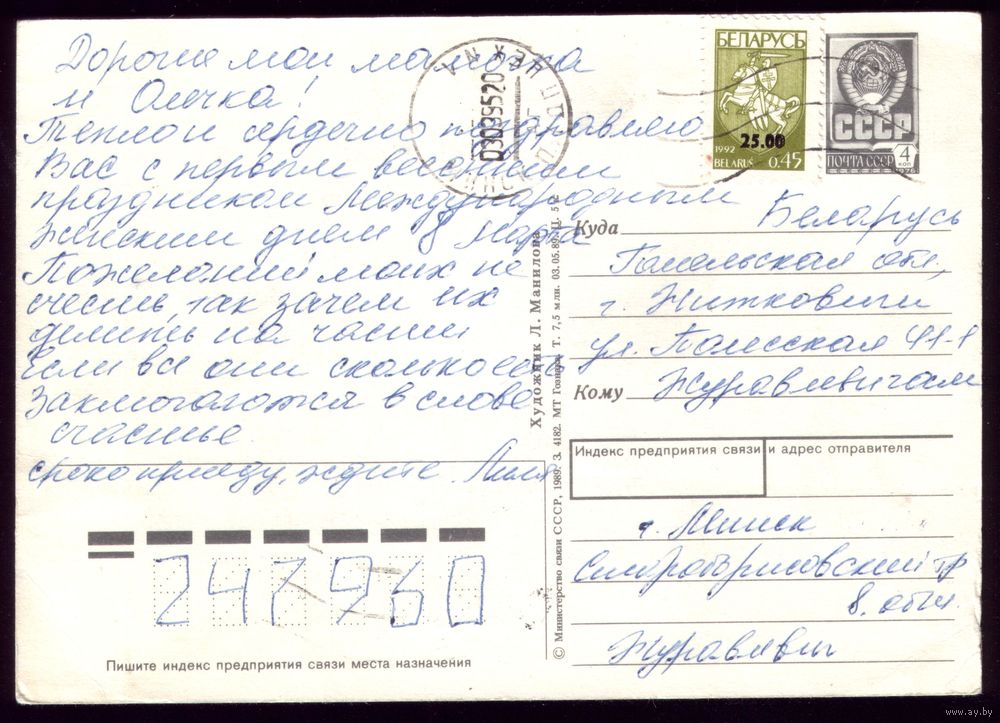 Дорогие мои мамочка
и Олечка!
Тепло и сердечно поздравляю
Вас с первым весенним
праздником Международным
женским днем 8 Марта
Пожеланий моих не
счесть, так зачем их
делить на части
Если все они сколько есть
Заключаются в слове
счастье.
скоро приеду, ждите. Лиля
БЕЛАРУСЬ
25.00
1992
BELARUS 0.45
СССР
ПОЧТА СССР 4 КОП
1976
03039520
Куда Беларусь
Гомельская обл,
г. Житковичи
ул. Полесская 44-1
Кому Журавлевичам
Индекс предприятия связи и адрес отправителя
г. Минск
Староборисовский тр
8, общ.
Журавлевич
247960
Пишите индекс предприятия связи места назначения
Художник Л. Манилова
© Министерство связи СССР, 1989. З. 4182. МТ Гознака. Т. 7,5 млн. 03.05.89. Ц. 5 к.
www.ay.by